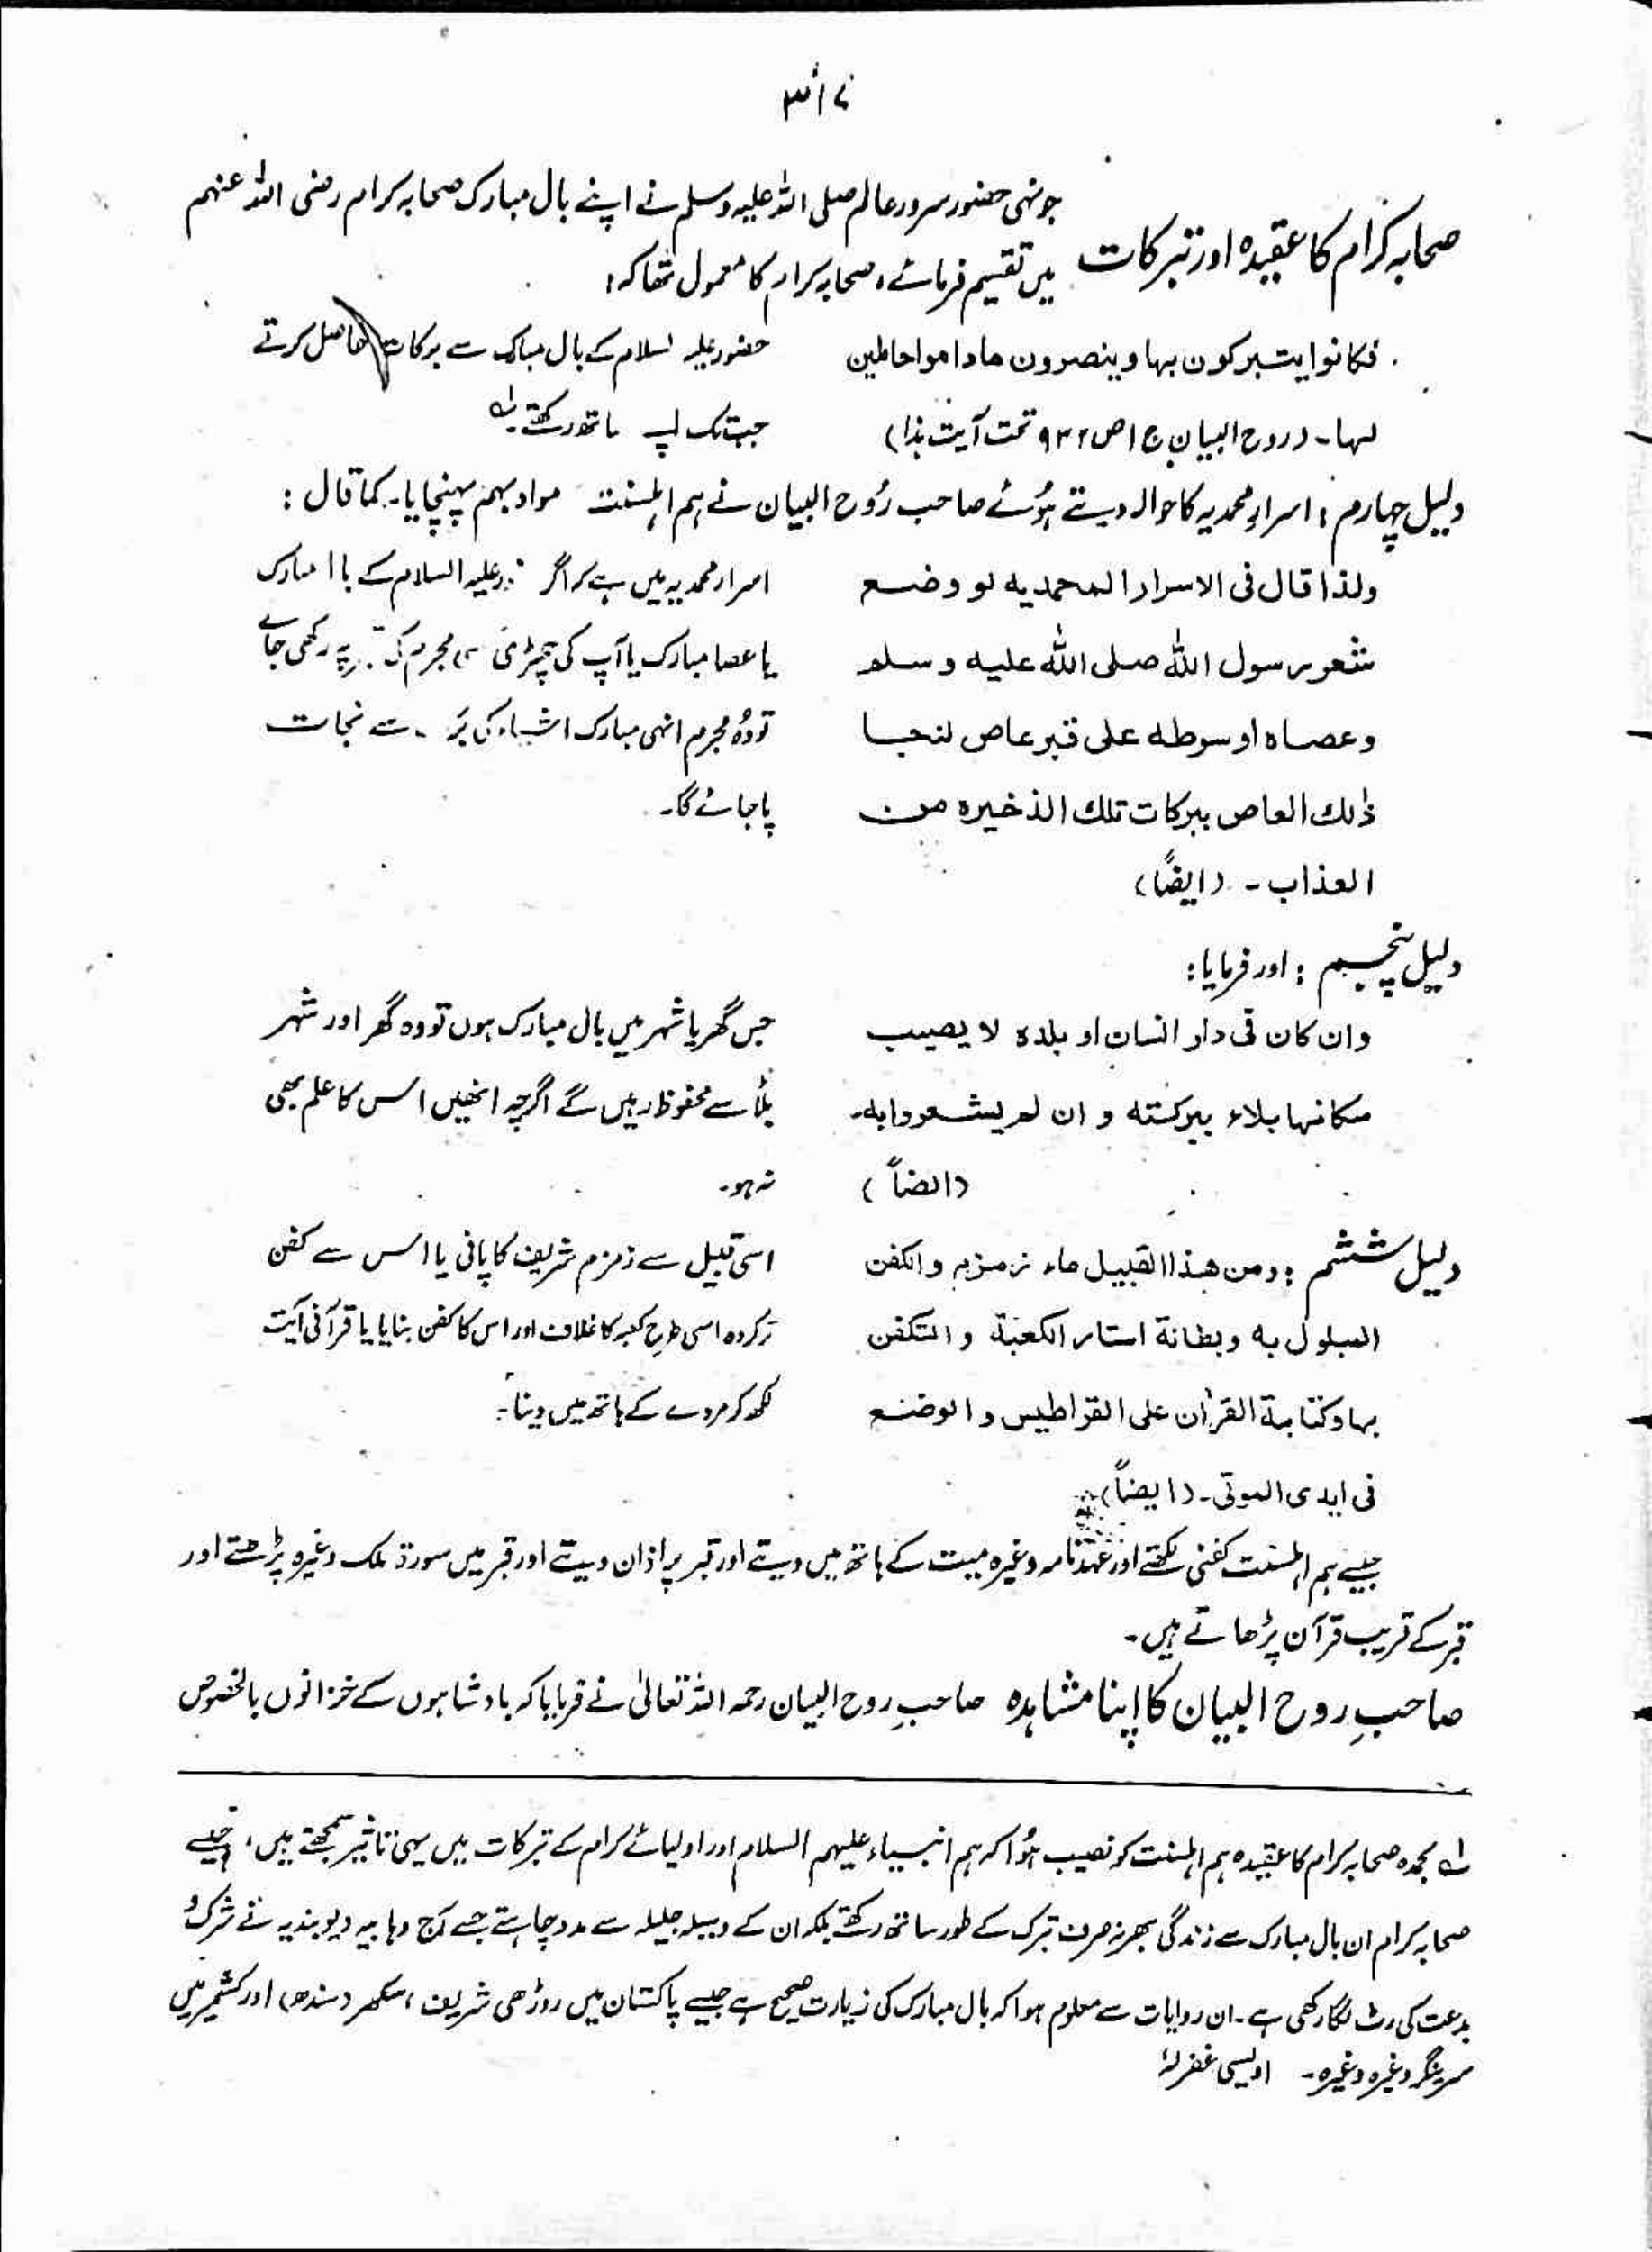 ۳۱۷
صحابہ کرام کا عقیدہ اور تبرکات
جونہی حضور سرور عالم صلی اللہ علیہ وسلم نے اپنے بال مبارک صحابہ کرام رضی اللہ عنہم
میں تقسیم فرمائے، صحابہ کرام کا معمول تھا کہ:
فکانوا یتبرکون بہا وینصرون ما داموا حاملین
لہا۔ (روح البیان ج ۱ ص ۹۳۲ تحت آیت ہذا)
حضور علیہ السلام کے بال مبارک سے برکات حاصل کرتے
جب تک اپنے ساتھ رکھتے۔ لہ
دلیل چہارم : اسرارِ محمدیہ کا حوالہ دیتے ہوئے صاحب رُوح البیان نے ہم اہلسنت مواد بہم پہنچایا۔ کما قال :
ولذا قال فی الاسرار المحمدیه لو وضع
شعر رسول اللہ صلی اللہ علیه وسلم
وعصاه او سوطه علی قبر عاص لنجا
ذٰلك العاص ببرکات تلك الذخیرہ من
العذاب۔ (ایضاً)
اسرار محمدیہ میں ہے کہ اگر علیہ السلام کے بال مبارک
یا عصا مبارک یا آپ کی چھڑی مجرم کی پہ رکھی جائے
تو وُہ مجرم انہی مبارک اشیاء کی سے نجات
پا جائے گا۔
دلیل پنجم : اور فرمایا:
وان کان فی دار انسان او بلدہ لا یصیب
مکانہا بلاء ببرکته و ان لم یشعروا به۔
(ایضاً)
جس گھر یا شہر میں بال مبارک ہوں تو وہ گھر اور شہر
بلا سے محفوظ رہیں گے اگرچہ انھیں اس کا علم بھی
نہ ہو۔
دلیل ششم : ومن هذا القبیل ماء زمزم والکفن
المبلول به وبطانة استار الکعبة والتکفن
بہا وکتابة القرآن علی القراطیس والوضع
فی ایدی الموتی۔ (ایضاً)
اسی قبیل سے زمزم شریف کا پانی یا اس سے کفن
تر کردہ اسی طرح کعبہ کا غلاف اور اس کا کفن بنایا یا قرآنی آیت
لکھ کر مردے کے ہاتھ میں دینا۔
جیسے ہم اہلسنت کفنی لکھتے اور عہدنامہ وغیرہ میت کے ہاتھ میں دیتے اور قبر پر اذان دیتے اور قبر میں سورۃ ملک وغیرہ پڑھتے اور
قبر کے قریب قرآن پڑھاتے ہیں۔
صاحبِ روح البیان کا اپنا مشاہدہ صاحبِ روح البیان رحمہ اللہ تعالیٰ نے فرمایا کہ بادشاہوں کے خزانوں بالخصوص
لہ بحمدہ صحابہ کرام کا عقیدہ ہم اہلسنت کو نصیب ہُوا کہ ہم انبیاء علیہم السلام اور اولیائے کرام کے تبرکات میں یہی تاثیر سمجھتے ہیں، جیسے
صحابہ کرام ان بال مبارک سے زندگی بھر نہ صرف تبرک کے طور ساتھ رکھتے بلکہ ان کے وسیلہ جلیلہ سے مدد چاہتے جسے آج وہابیہ دیوبندیہ نے شرک و
بدعت کی رٹ لگا رکھی ہے۔ ان روایات سے معلوم ہوا کہ بال مبارک کی زیارت صحیح ہے جیسے پاکستان میں روڑھی شریف، سکھر (سندھ) اور کشمیر میں
سرینگر وغیرہ وغیرہ۔ اویسی غفرلہٗ